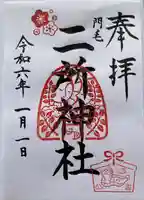 奉拝
門毛
二所神社
令和六年一月一日